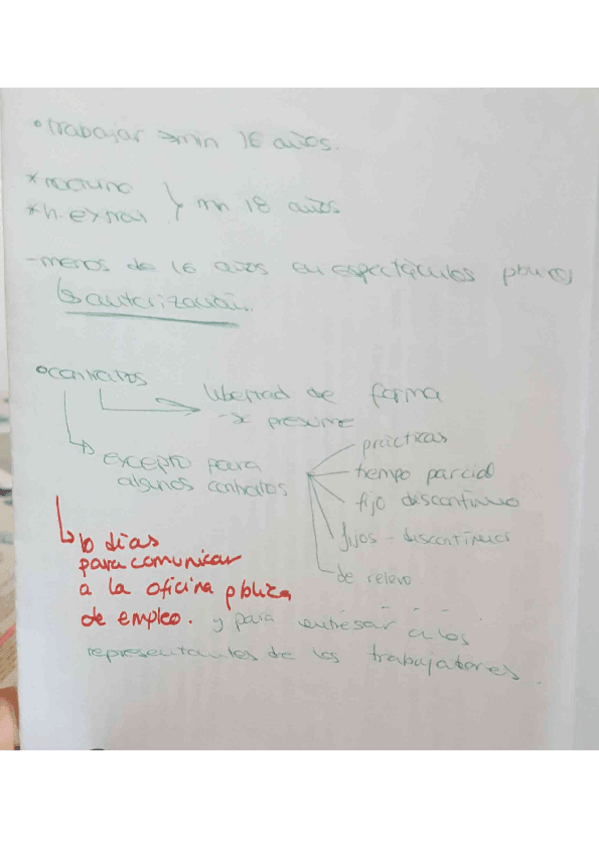 • trabajar → min 16 años.
* nocturno
* h. extras } min 18 años
- menos de 16 años en espectáculos pbcos
↳ autorización.
• contratos → libertad de forma
→ presume
↳ excepto para
algunos contratos
prácticas
tiempo parcial
fijo discontinuo
fijos - discontinuos
de relevo
↳ 10 días
para comunicar
a la oficina pbliza
de empleo. y para entresar a los
representantes de los trabajatores.